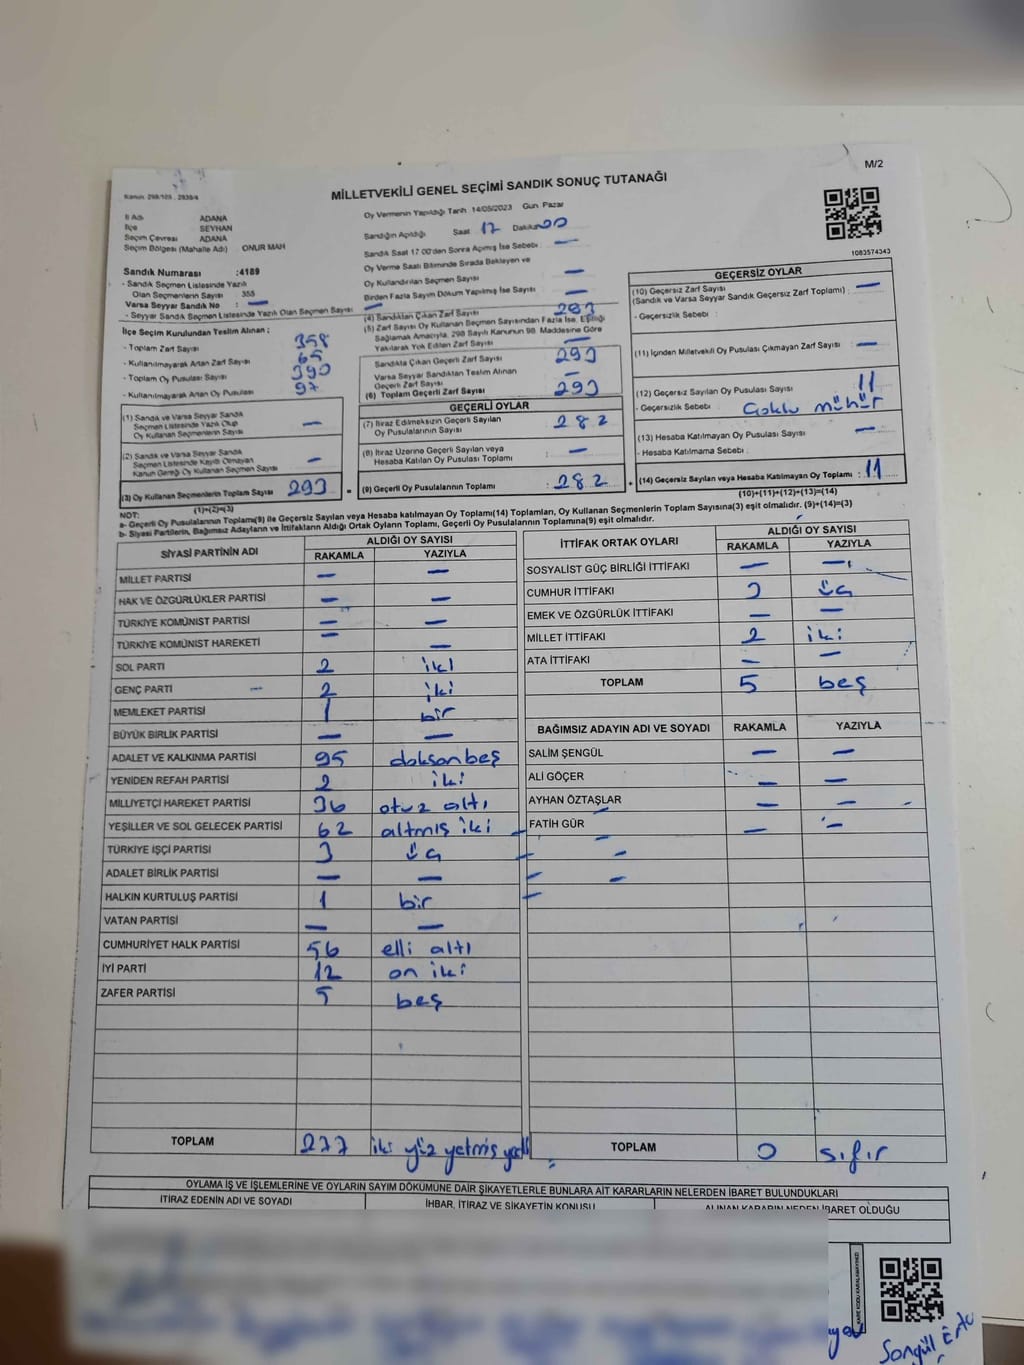 M/2
Kanun: 298/105 , 2839/4
MİLLETVEKİLİ GENEL SEÇİMİ SANDIK SONUÇ TUTANAĞI
İl Adı ADANA
İlçe SEYHAN
Seçim Çevresi ADANA
Seçim Bölgesi (Mahalle Adı) ONUR MAH
Oy Vermenin Yapıldığı Tarih 14/05/2023 Gün Pazar
Sandığın Açıldığı Saat 17 Dakika 00
Sandık Saat 17 00'den Sonra Açılmış İse Sebebi : —
Oy Verme Saati Bitiminde Sırada Bekleyen ve
Oy Kullandırılan Seçmen Sayısı —
Birden Fazla Sayım Döküm Yapılmış İse Sayısı : —
1083574343
Sandık Numarası :4189
- Sandık Seçmen Listesinde Yazılı
Olan Seçmenlerin Sayısı : 355
Varsa Seyyar Sandık No : —
- Seyyar Sandık Seçmen Listesinde Yazılı Olan Seçmen Sayısı —
İlçe Seçim Kurulundan Teslim Alınan ;
- Toplam Zarf Sayısı 358
- Kullanılmayarak Artan Zarf Sayısı 65
- Toplam Oy Pusulası Sayısı 390
- Kullanılmayarak Artan Oy Pusulası 97
(4) Sandıktan Çıkan Zarf Sayısı 293
(5) Zarf Sayısı Oy Kullanan Seçmen Sayısından Fazla İse, Eşitliği
Sağlamak Amacıyla, 298 Sayılı Kanunun 98. Maddesine Göre
Yakılarak Yok Edilen Zarf Sayısı —
Sandıkta Çıkan Geçerli Zarf Sayısı 293
Varsa Seyyar Sandıktan Teslim Alınan
Geçerli Zarf Sayısı —
(6) Toplam Geçerli Zarf Sayısı 293
(1) Sandık ve Varsa Seyyar Sandık
Seçmen Listesinde Yazılı Olup
Oy Kullanan Seçmenlerin Sayısı —
(2) Sandık ve Varsa Seyyar Sandık
Seçmen Listesinde Kayıtlı Olmayan
Kanun Gereği Oy Kullanan Seçmen Sayısı —
(3) Oy Kullanan Seçmenlerin Toplam Sayısı 293
(1)+(2)=(3)
GEÇERLİ OYLAR
(7) İtiraz Edilmeksizin Geçerli Sayılan
Oy Pusulalarının Sayısı : 282
(8) İtiraz Üzerine Geçerli Sayılan veya
Hesaba Katılan Oy Pusulası Toplamı : —
(9) Geçerli Oy Pusulalarının Toplamı : 282
GEÇERSİZ OYLAR
(10) Geçersiz Zarf Sayısı
(Sandık ve Varsa Seyyar Sandık Geçersiz Zarf Toplamı) : —
- Geçersizlik Sebebi :
(11) İçinden Milletvekili Oy Pusulası Çıkmayan Zarf Sayısı : —
(12) Geçersiz Sayılan Oy Pusulası Sayısı : 11
- Geçersizlik Sebebi : Çoklu mühür
(13) Hesaba Katılmayan Oy Pusulası Sayısı : —
- Hesaba Katılmama Sebebi :
(14) Geçersiz Sayılan veya Hesaba Katılmayan Oy Toplamı : 11
(10)+(11)+(12)+(13)=(14)
NOT:
a- Geçerli Oy Pusulalarının Toplamı(9) ile Geçersiz Sayılan veya Hesaba katılmayan Oy Toplamı(14) Toplamları, Oy Kullanan Seçmenlerin Toplam Sayısına(3) eşit olmalıdır. (9)+(14)=(3)
b- Siyasi Partilerin, Bağımsız Adayların ve İttifakların Aldığı Ortak Oyların Toplamı, Geçerli Oy Pusulalarının Toplamına(9) eşit olmalıdır.
SİYASİ PARTİNİN ADI ALDIĞI OY SAYISI
RAKAMLA YAZIYLA
MİLLET PARTİSİ — —
HAK VE ÖZGÜRLÜKLER PARTİSİ — —
TÜRKİYE KOMÜNİST PARTİSİ — —
TÜRKİYE KOMÜNİST HAREKETİ — —
SOL PARTİ 2 iki
GENÇ PARTİ 2 iki
MEMLEKET PARTİSİ 1 bir
BÜYÜK BİRLİK PARTİSİ — —
ADALET VE KALKINMA PARTİSİ 95 doksan beş
YENİDEN REFAH PARTİSİ 2 iki
MİLLİYETÇİ HAREKET PARTİSİ 36 otuz altı
YEŞİLLER VE SOL GELECEK PARTİSİ 62 altmış iki
TÜRKİYE İŞÇİ PARTİSİ 3 üç
ADALET BİRLİK PARTİSİ — —
HALKIN KURTULUŞ PARTİSİ 1 bir
VATAN PARTİSİ — —
CUMHURİYET HALK PARTİSİ 56 elli altı
İYİ PARTİ 12 on iki
ZAFER PARTİSİ 5 beş
TOPLAM 277 iki yüz yetmiş yedi
İTTİFAK ORTAK OYLARI ALDIĞI OY SAYISI
RAKAMLA YAZIYLA
SOSYALİST GÜÇ BİRLİĞİ İTTİFAKI — —
CUMHUR İTTİFAKI 3 üç
EMEK VE ÖZGÜRLÜK İTTİFAKI — —
MİLLET İTTİFAKI 2 iki
ATA İTTİFAKI — —
TOPLAM 5 beş
BAĞIMSIZ ADAYIN ADI VE SOYADI RAKAMLA YAZIYLA
SALİM ŞENGÜL — —
ALİ GÖÇER — —
AYHAN ÖZTAŞLAR — —
FATİH GÜR — —
TOPLAM 0 sıfır
OYLAMA İŞ VE İŞLEMLERİNE VE OYLARIN SAYIM DÖKÜMÜNE DAİR ŞİKAYETLERLE BUNLARA AİT KARARLARIN NELERDEN İBARET BULUNDUKLARI
İTİRAZ EDENİN ADI VE SOYADI İHBAR, İTİRAZ VE ŞİKAYETİN KONUSU ALINAN KARARIN NEDEN İBARET OLDUĞU
KARE KODU KARALAMAYINIZ!
Songül